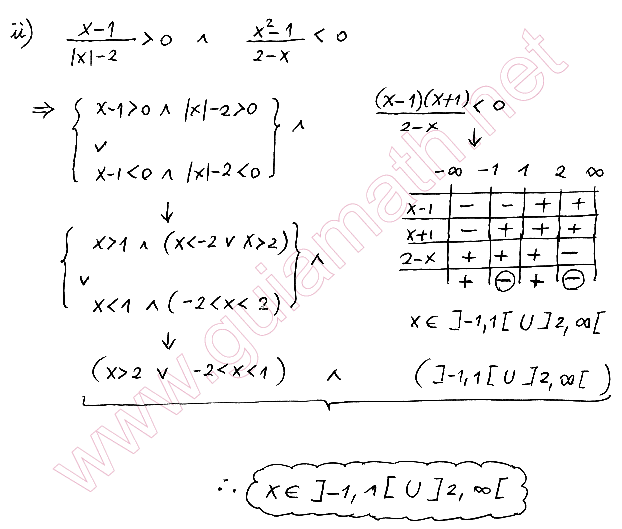 ii) (x-1)/(|x|-2) > 0 ∧ (x²-1)/(2-x) < 0
⇒ { x-1>0 ∧ |x|-2>0 } ∧
∨
x-1<0 ∧ |x|-2<0
↓
{ x>1 ∧ (x<-2 ∨ x>2) } ∧
∨
x<1 ∧ (-2<x<2)
↓
(x-1)(x+1)/(2-x) < 0
↓
-∞ -1 1 2 ∞
x-1 | - | - | + | +
x+1 | - | + | + | +
2-x | + | + | + | -
+ | ⊖ | + | ⊖
x∈ ]-1,1[ U ]2,∞[
(x>2 ∨ -2<x<1) ∧ (]-1,1[ U ]2,∞[)
∴ x∈ ]-1,1[ U ]2,∞[
www.guiamath.net